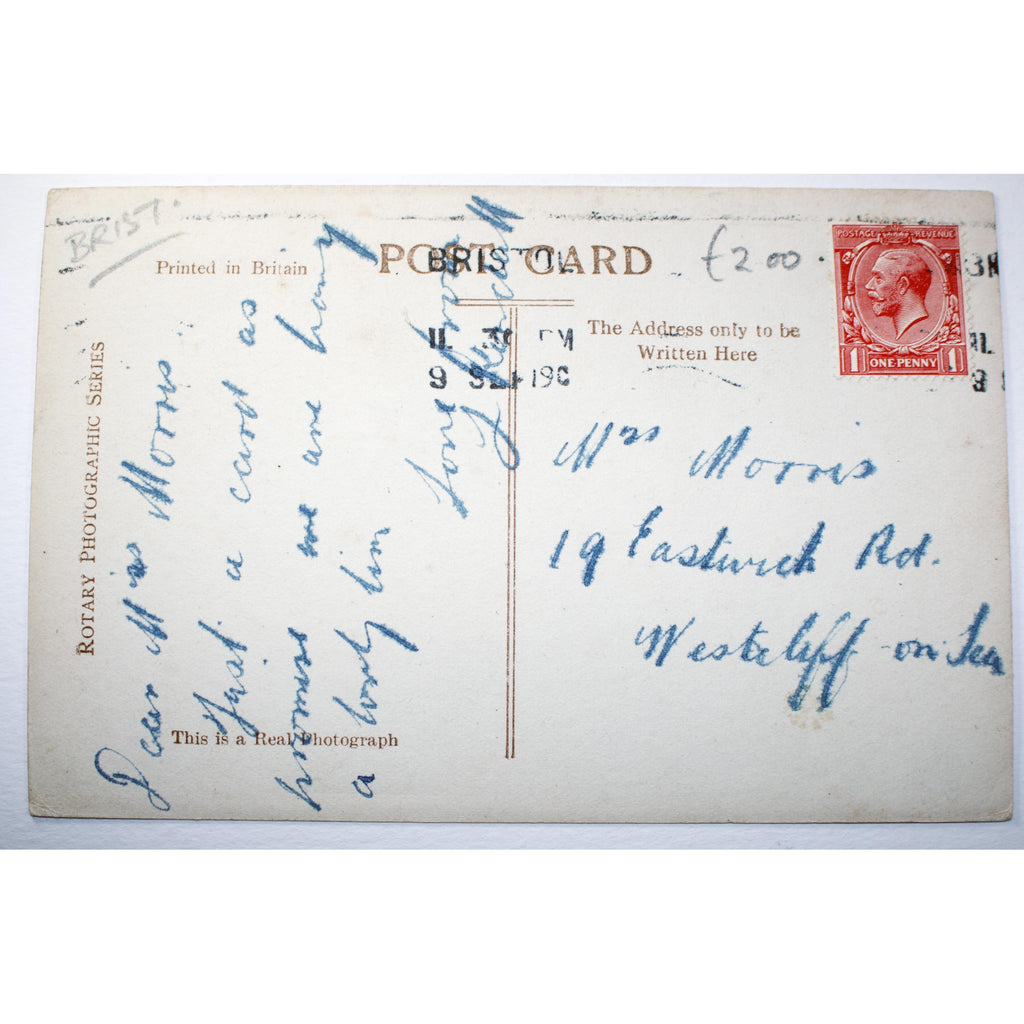 BRIST.
Printed in Britain
POST CARD
£2.00
POSTAGE REVENUE
1 ONE PENNY 1
BRISTOL
PM
ROTARY PHOTOGRAPHIC SERIES
The Address only to be
Written Here
Dear Mrs Morris
Just a card as
promised we are having
a lovely time
love from
Mrs Morris
19 Eastwick Rd.
Westcliff-on-Sea
This is a Real Photograph